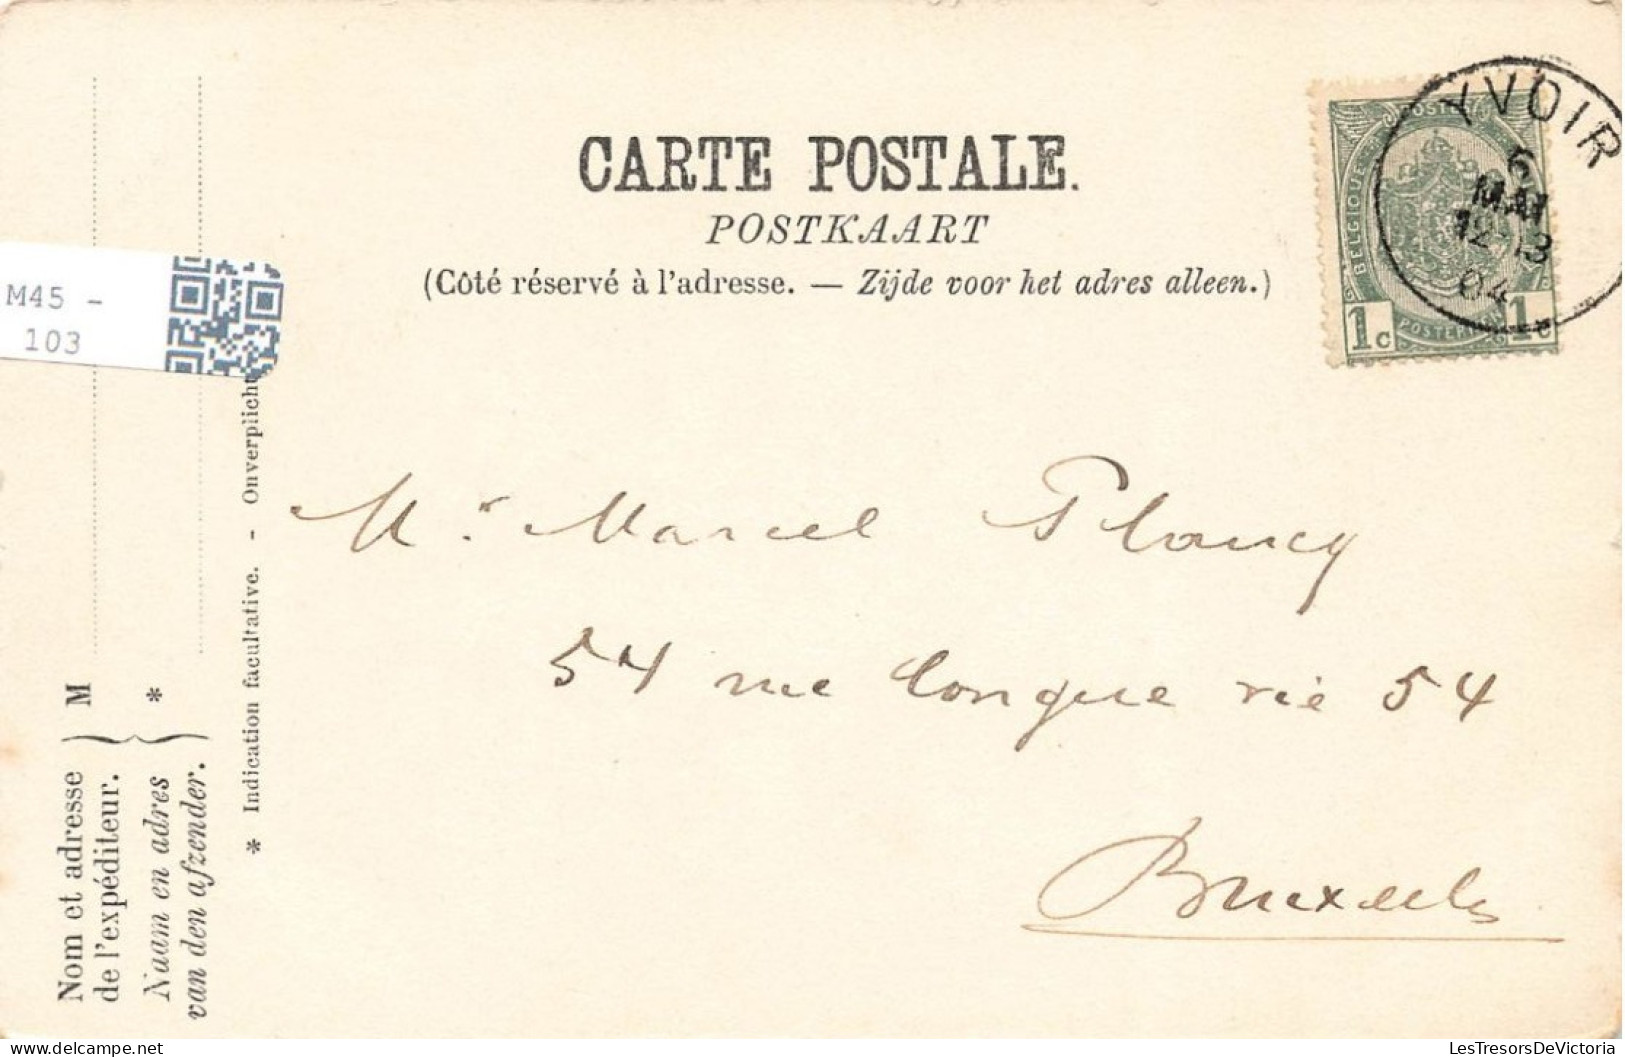 CARTE POSTALE.
POSTKAART
(Côté réservé à l'adresse. — Zijde voor het adres alleen.)
YVOIR
6
MAI
12-13
04
POSTE
BELGIQUE
POSTERIJEN
1c 1c
M45 -
103
Mr Marcel Plancy
54 rue longue vie 54
Bruxelles
Nom et adresse
de l'expéditeur.
M
Naam en adres
van den afzender.
*
* Indication facultative. - Onverplicht
LesTresorsDeVictoria